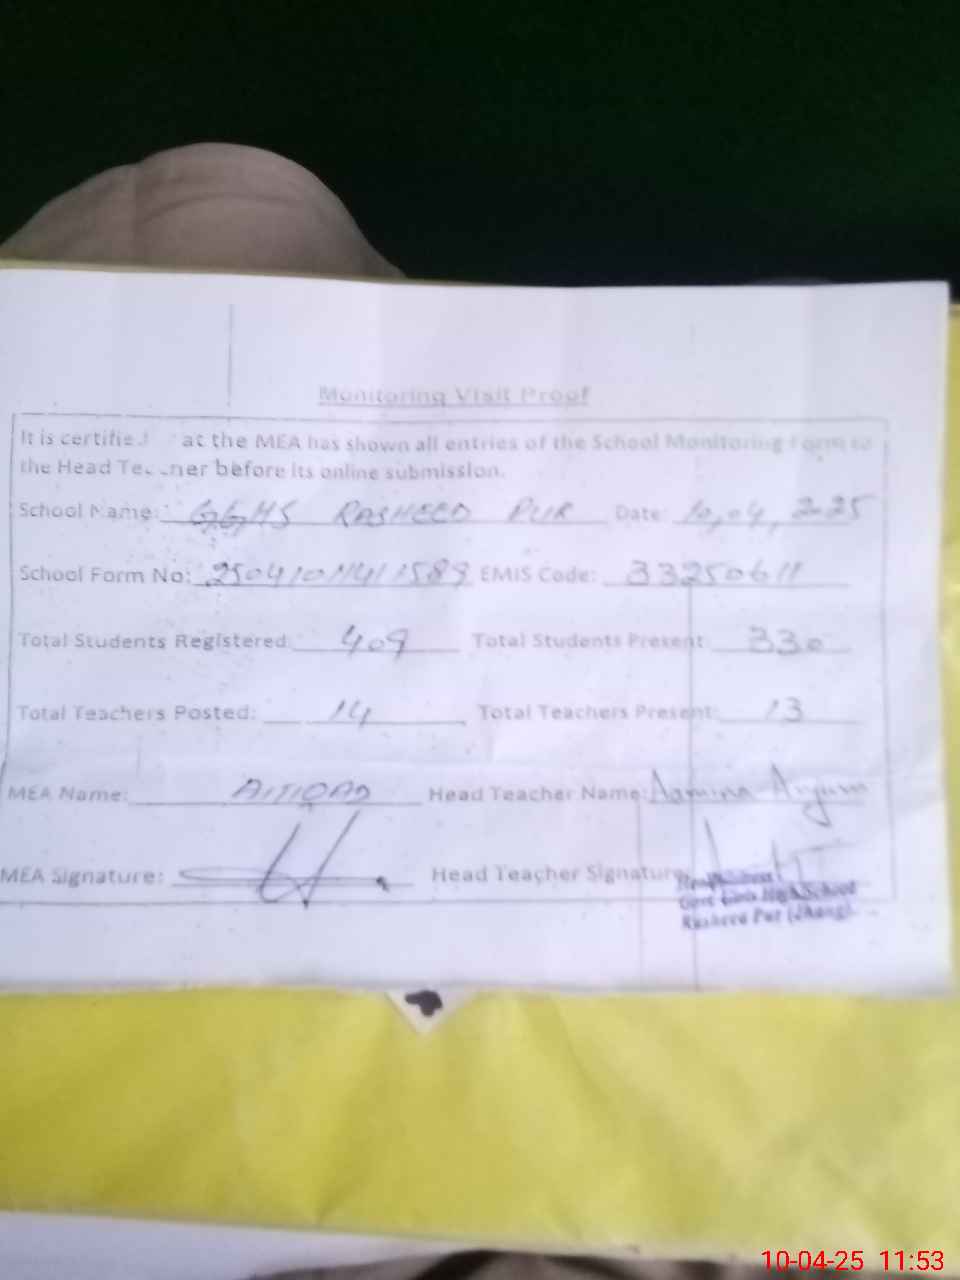 Monitoring Visit Proof
It is certified at the MEA has shown all entries of the School Monitoring Form to
the Head Teacher before its online submission.
School Name: GGHS RASHEED PUR Date: 10,04,2025
School Form No: EMIS Code: 33250611
Total Students Registered: 409 Total Students Present: 330
Total Teachers Posted: 14 Total Teachers Present: 13
MEA Name: Head Teacher Name: Aamina Anjum
MEA Signature: Head Teacher Signature:
Govt Girls High School
Rasheed Pur (Jhang).
10-04-25 11:53